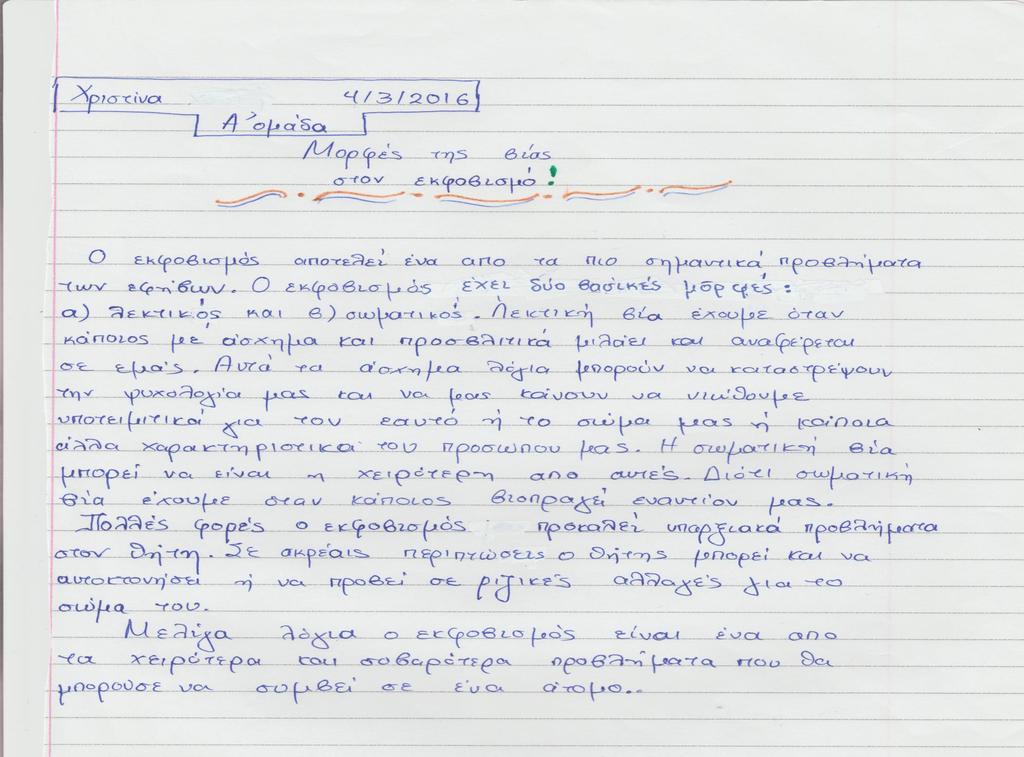 Χριστίνα 4/3/2016
Α' ομάδα
Μορφές της βίας
στον εκφοβισμό!
Ο εκφοβισμός αποτελεί ένα απο τα πιο σημαντικά προβλήματα
των εφήβων. Ο εκφοβισμός έχει δύο βασικές μορφές:
α) λεκτικός και β) σωματικός. Λεκτική βία έχουμε όταν
κάποιος με άσχημα και προσβλιτικά μιλάει και αναφέρεται
σε εμάς. Αυτά τα άσχημα λόγια μπορούν να καταστρέψουν
την ψυχολογία μας και να μας κάνουν να νιώθουμε
υποτειμιτικά για τον εαυτό ή το σώμα μας ή κάποια
άλλα χαρακτηριστικά του προσώπου μας. Η σωματική βία
μπορεί να είναι η χειρότερη απο αυτές. Διότι σωματική
βία έχουμε όταν κάποιος βιοπραγεί εναντίον μας.
Πολλές φορές ο εκφοβισμός προκαλεί υπαρξιακά προβλήματα
στον θήτη. Σε ακρέαις περιπτώσεις ο θήτης μπορεί και να
αυτοκτονήσει ή να προβεί σε ριζικές αλλαγές για το
σώμα του.
Μελίγα λόγια ο εκφοβισμός είναι ένα απο
τα χειρότερα και σοβαρότερα προβλήματα που θα
μπορούσε να συμβεί σε ένα άτομο..